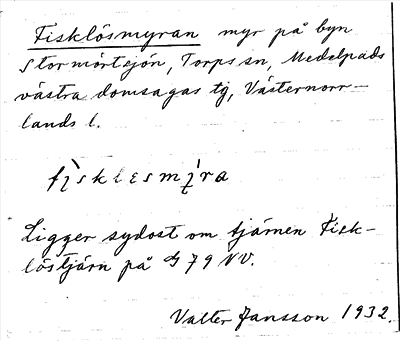 Fisklösmyran myr på byn
Stormörtsjön, Torps sn, Medelpads
västra domsagas tg, Västernorr-
lands l.
Ligger sydost om tjärnen Fisk-
löstjärn på G 79 NV.
Valter Jansson 1932.